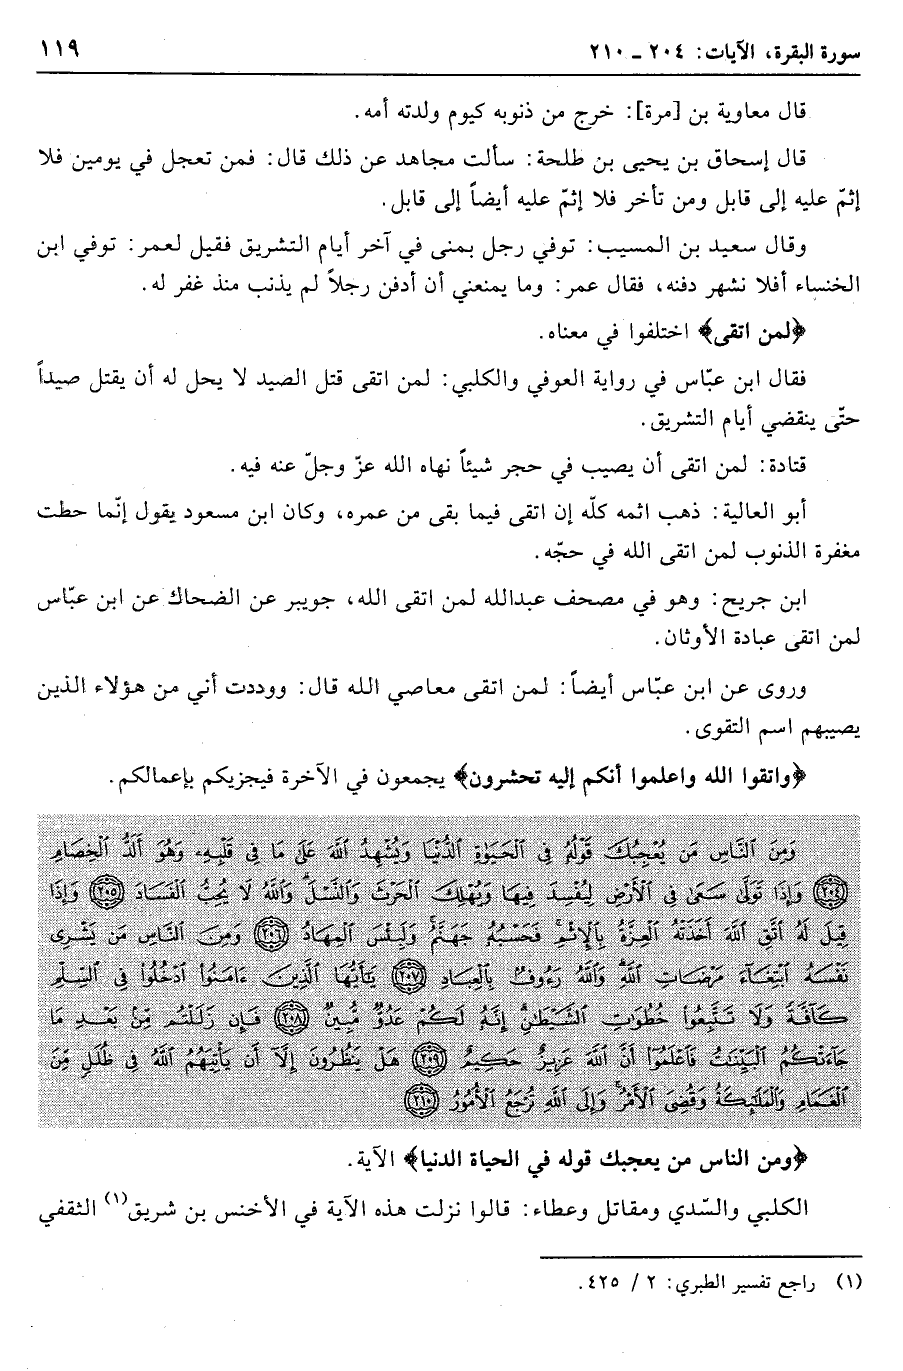 سورة البقرة، الآيات: ٢٠٤ ـ ٢١٠ ١١٩
قال معاوية بن [مرة]: خرج من ذنوبه كيوم ولدته أمه.
قال إسحاق بن يحيى بن طلحة: سألت مجاهد عن ذلك قال: فمن تعجل في يومين فلا
إثمّ عليه إلى قابل ومن تأخر فلا إثمّ عليه أيضاً إلى قابل.
وقال سعيد بن المسيب: توفي رجل بمنى في آخر أيام التشريق فقيل لعمر: توفي ابن
الخنساء أفلا نشهر دفنه، فقال عمر: وما يمنعني أن أدفن رجلاً لم يذنب منذ غفر له.
﴿لمن اتقى﴾ اختلفوا في معناه.
فقال ابن عبّاس في رواية العوفي والكلبي: لمن اتقى قتل الصيد لا يحل له أن يقتل صيداً
حتّى ينقضي أيام التشريق.
قتادة: لمن اتقى أن يصيب في حجر شيئاً نهاه الله عزّ وجلّ عنه فيه.
أبو العالية: ذهب اثمه كلّه إن اتقى فيما بقى من عمره، وكان ابن مسعود يقول إنّما حطت
مغفرة الذنوب لمن اتقى الله في حجّه.
ابن جريح: وهو في مصحف عبدالله لمن اتقى الله، جويبر عن الضحاك عن ابن عبّاس
لمن اتقى عبادة الأوثان.
وروى عن ابن عبّاس أيضاً: لمن اتقى معاصي الله قال: ووددت أني من هؤلاء الذين
يصيبهم اسم التقوى.
﴿واتقوا الله واعلموا أنكم إليه تحشرون﴾ يجمعون في الآخرة فيجزيكم بإعمالكم.
وَمِنَ النَّاسِ مَن يُعْجِبُكَ قَوْلُهُ فِي الْحَيَوٰةِ الدُّنْيَا وَيُشْهِدُ اللَّهَ عَلَىٰ مَا فِي قَلْبِهِۦ وَهُوَ أَلَدُّ الْخِصَامِ
﴿٢٠٤﴾ وَإِذَا تَوَلَّىٰ سَعَىٰ فِي الْأَرْضِ لِيُفْسِدَ فِيهَا وَيُهْلِكَ الْحَرْثَ وَالنَّسْلَ وَاللَّهُ لَا يُحِبُّ الْفَسَادَ ﴿٢٠٥﴾ وَإِذَا
قِيلَ لَهُ اتَّقِ اللَّهَ أَخَذَتْهُ الْعِزَّةُ بِالْإِثْمِ فَحَسْبُهُ جَهَنَّمُ وَلَبِئْسَ الْمِهَادُ ﴿٢٠٦﴾ وَمِنَ النَّاسِ مَن يَشْرِي
نَفْسَهُ ابْتِغَآءَ مَرْضَاتِ اللَّهِ وَاللَّهُ رَءُوفٌ بِالْعِبَادِ ﴿٢٠٧﴾ يَٰٓأَيُّهَا الَّذِينَ ءَامَنُوا ادْخُلُوا فِي السِّلْمِ
كَآفَّةً وَلَا تَتَّبِعُوا خُطُوَٰتِ الشَّيْطَٰنِ إِنَّهُ لَكُمْ عَدُوٌّ مُّبِينٌ ﴿٢٠٨﴾ فَإِن زَلَلْتُم مِّنۢ بَعْدِ مَا
جَآءَتْكُمُ الْبَيِّنَٰتُ فَاعْلَمُوا أَنَّ اللَّهَ عَزِيزٌ حَكِيمٌ ﴿٢٠٩﴾ هَلْ يَنظُرُونَ إِلَّآ أَن يَأْتِيَهُمُ اللَّهُ فِي ظُلَلٍ مِّنَ
الْغَمَامِ وَالْمَلَٰٓئِكَةُ وَقُضِيَ الْأَمْرُ وَإِلَى اللَّهِ تُرْجَعُ الْأُمُورُ ﴿٢١٠﴾
﴿ومن الناس من يعجبك قوله في الحياة الدنيا﴾ الآية.
الكلبي والسّدي ومقاتل وعطاء: قالوا نزلت هذه الآية في الأخنس بن شريق(١) الثقفي
(١) راجع تفسير الطبري: ٢ / ٤٢٥.